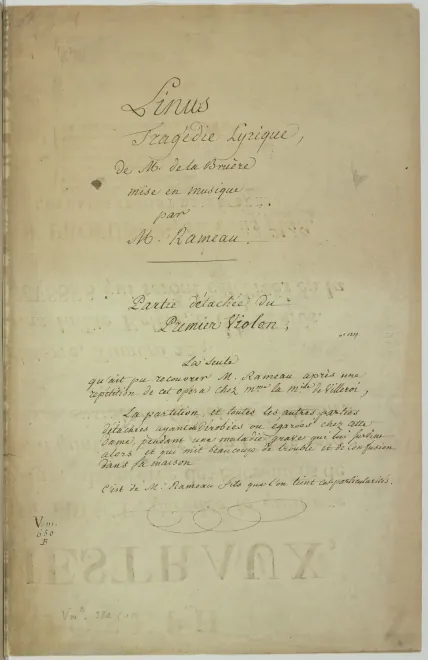 Linus
Tragédie Lyrique,
de M. de la Bruère
mise en musique
par
M. Rameau.
Partie détachée du
Premier Violon,
La seule
qu'ait pu recouvrer M. Rameau après une
répétition de cet opéra chez mme la mise de Villeroi,
La partition, et toutes les autres parties
détachées ayant été dérobées ou égarées chez cette
dame pendant une maladie grave qui lui survint
alors et qui mit beaucoup de trouble et de confusion
dans sa maison.
C'est de M. Rameau fils que l'on tient ces particularités.
Vm.
650
B
Vm2.